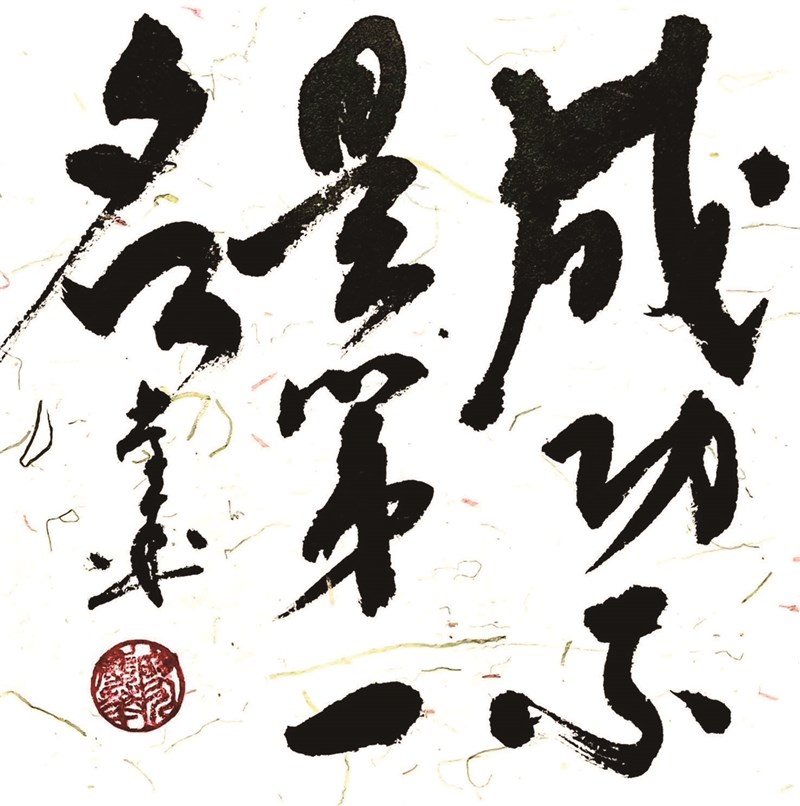 成功不
是第一
名